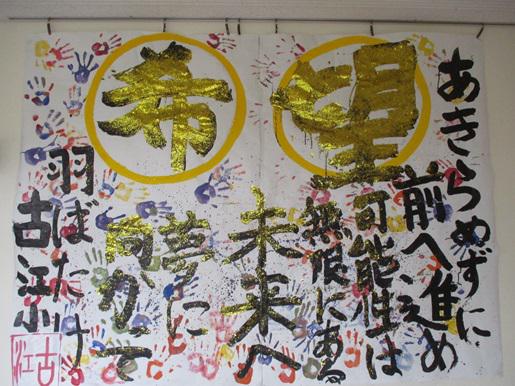 希望
あきらめずに
前へ進め
可能性は
無限に
未来へ
夢に
向かって
羽ばたけ
古江
古江